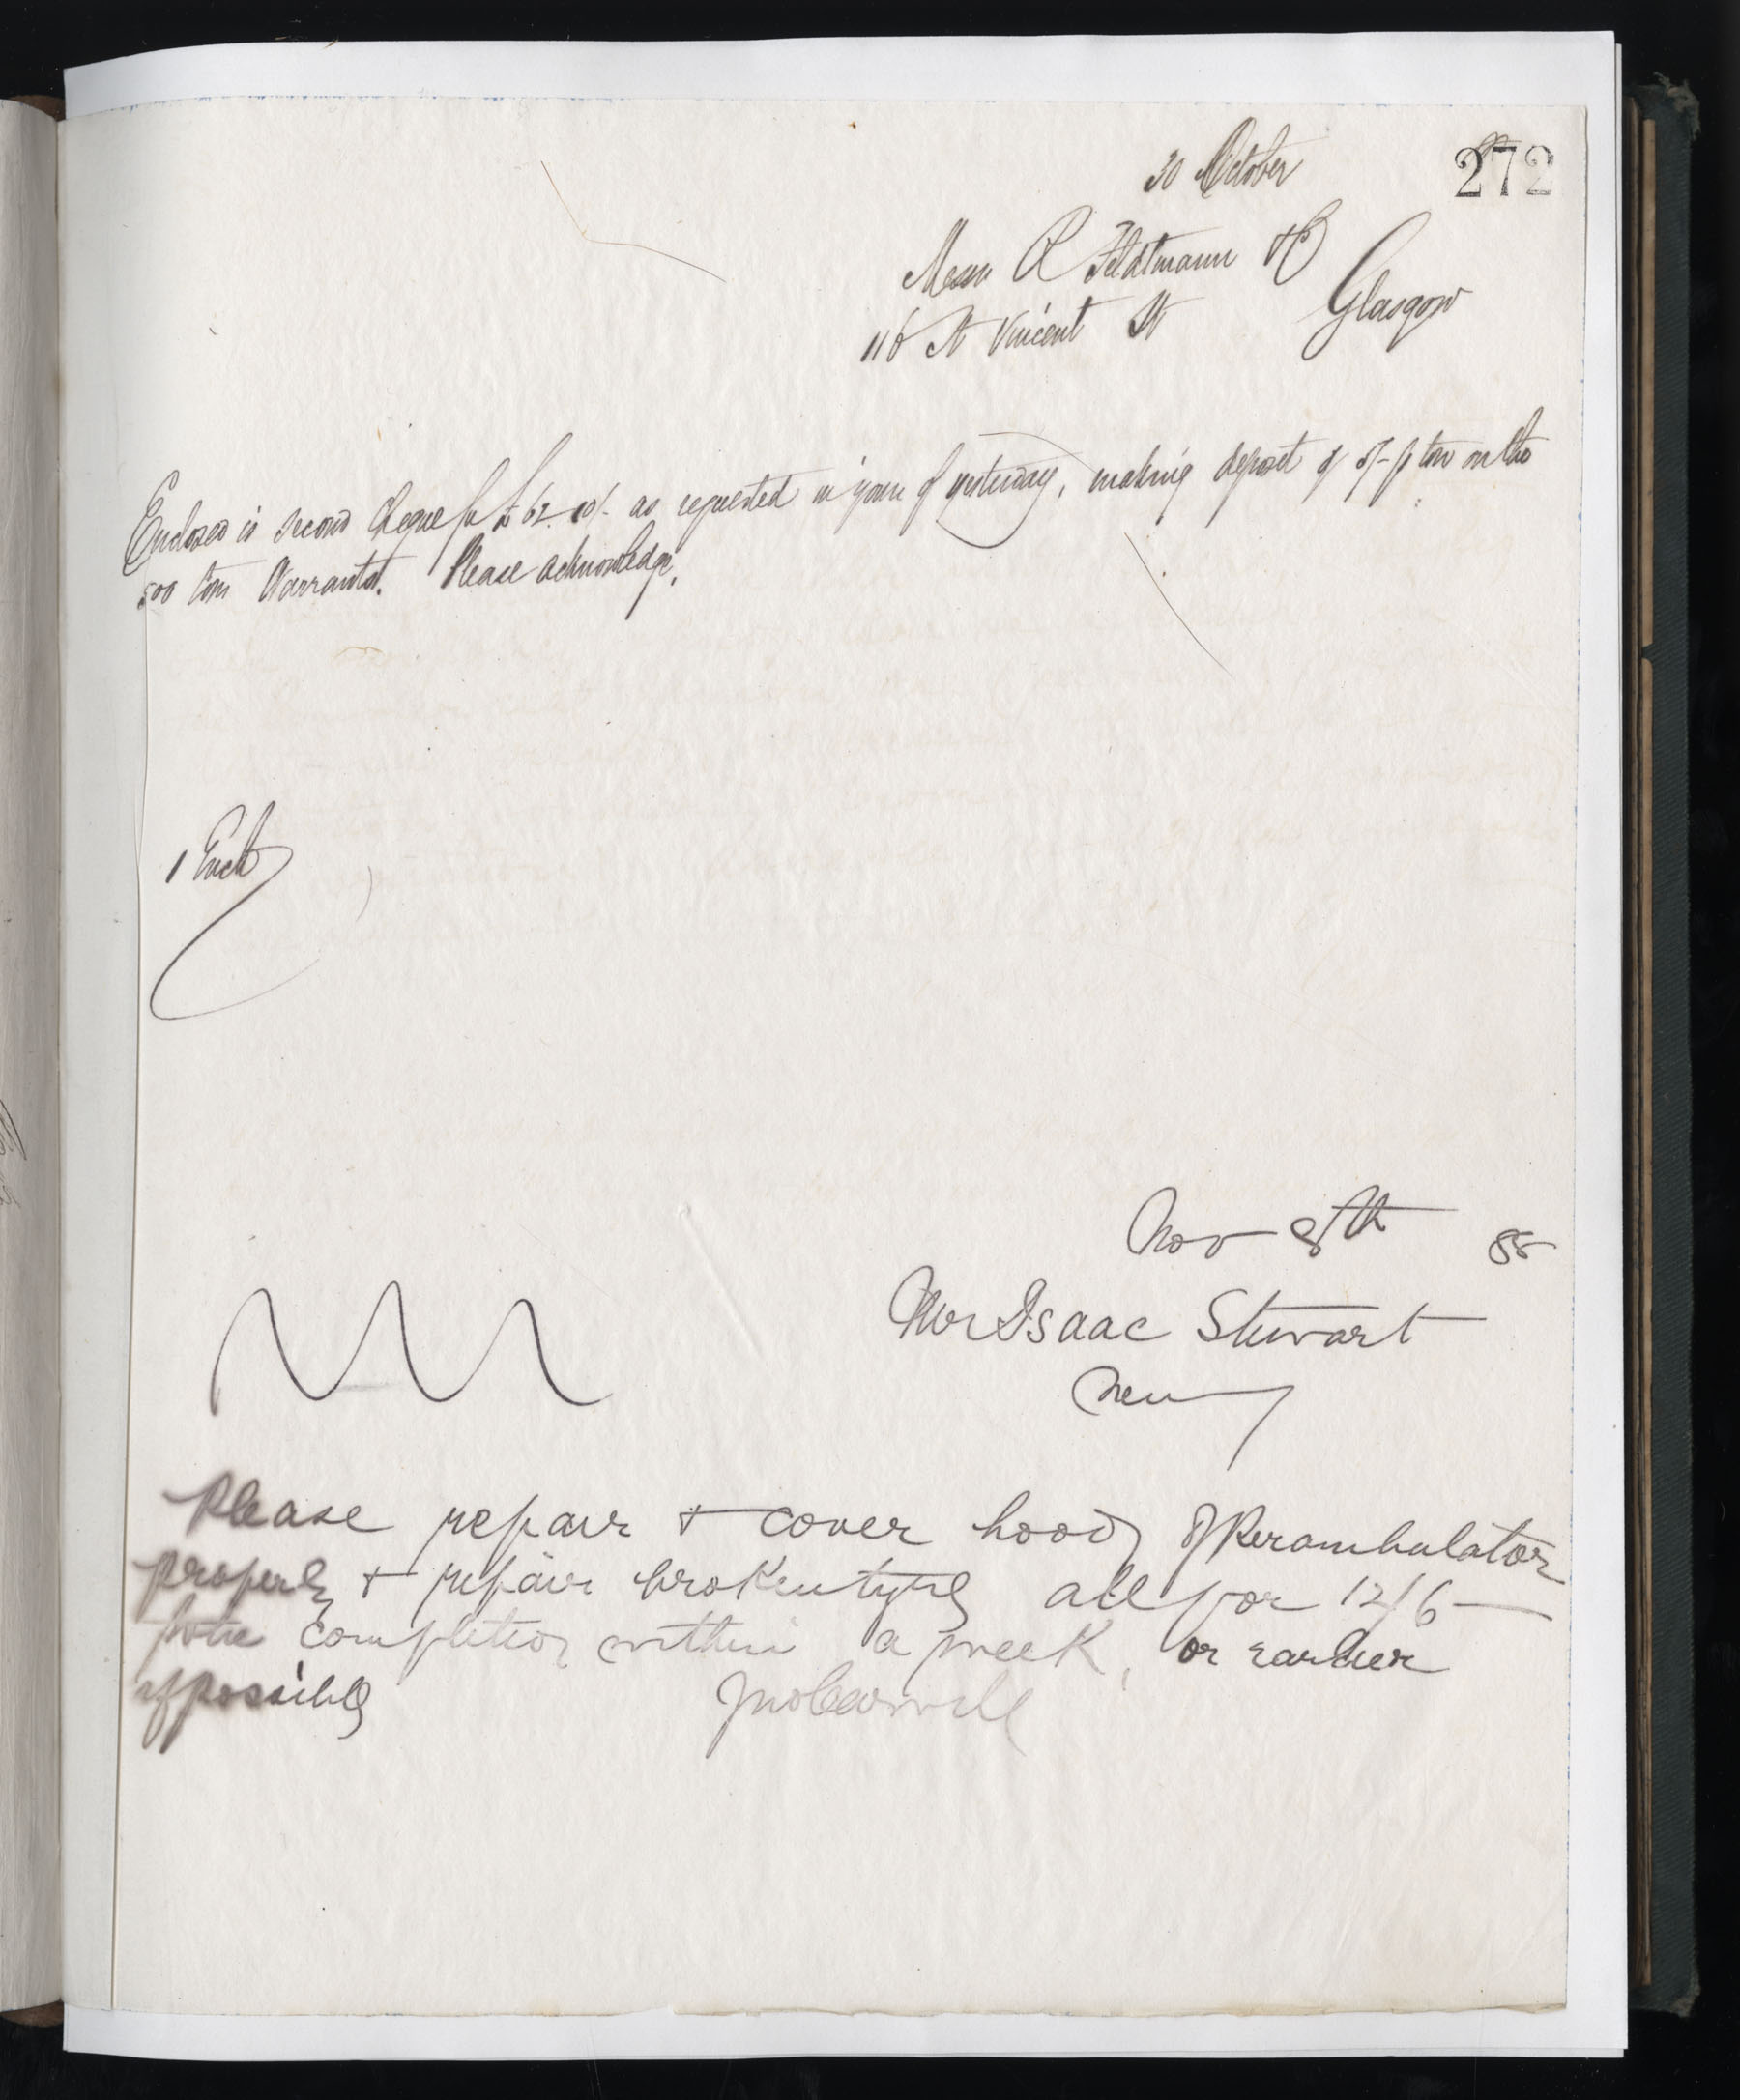 272
30 October
Messrs R Feldtmann & Co
116 St Vincent St Glasgow
Enclosed is second cheque for £62.10/- as requested in yours of yesterday, making deposit of 5/- p ton on the
500 tons Warrants. Please acknowledge.
1 Encl
Nov 8th 88
Mr Isaac Stewart
Newry
Please repair & cover hood of Perambulator
properly & repair broken tyre all for 12/6
completion within a week, or earlier
if possible